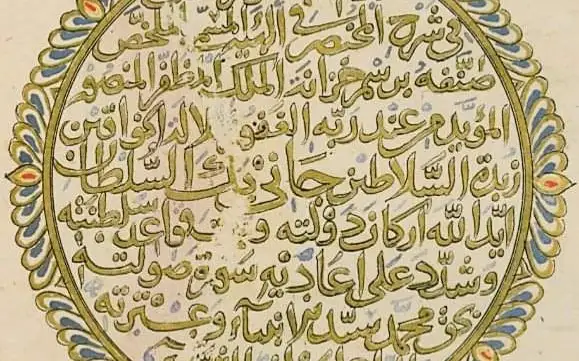 في شرح المختصر في الهيئة الملخص
صنفه برسم خزانة الملك المظفر المنصور
المؤيد من عند ربه الغفور
زبدة السلاطين جاني بك السلطان
ايد الله اركان دولته و قواعد سلطنته
وشدد على اعاديه سورة صولته
بحق محمد سيد الانبياء وعترته